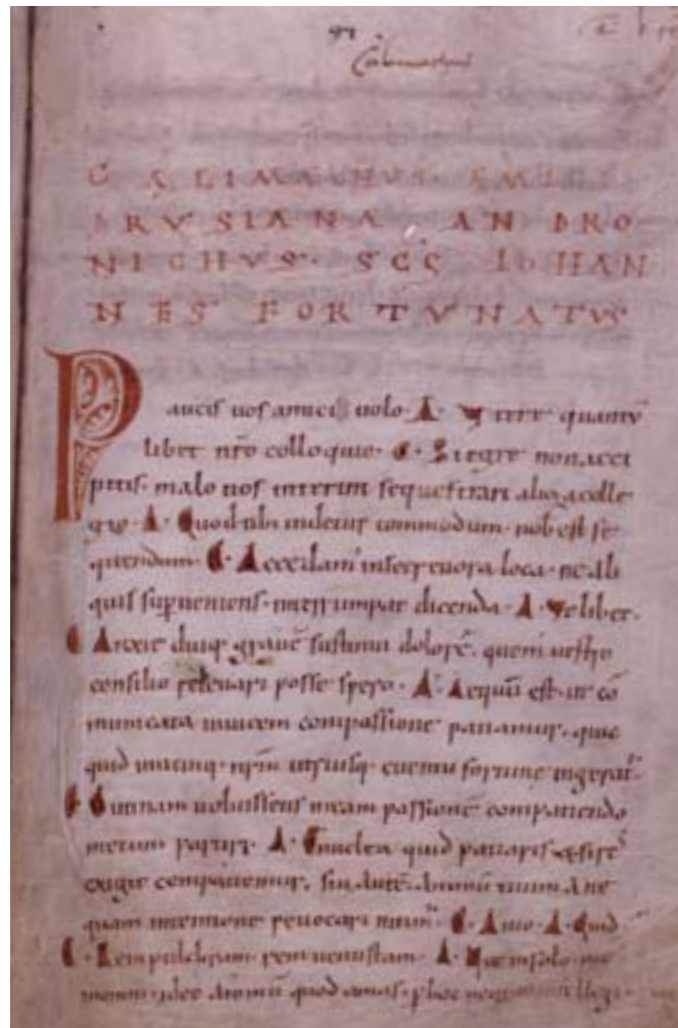 CALIMACHVS· AMICI
DRVSIANA· ANDRO
NICHVS· SCS IOHAN
NES FORTVNATVS
Paucis uos amici uolo· A· Vtere quantū
libet nr̄o colloquio· C· Si egre non acci
pitis· malo uos interim sequestrari aliorū colle
gio· A· Quod tibi uidetur commodum· nob̄ est se
quendum· C· Accedam' in secretiora loca· ne ali
quis supueniens· interrumpat dicenda· A· Vt libet·
C Anxie diuq; grauē sustinui dolorē· quem uestro
consilio releuari posse spero· A· Aequū est· ut cō
municata inuicem compassione patiamur· quic
quid unicuiq· nr̄m utriusq· euentu fortune ingerat̄·
C Vtinam uoluissetis meam passionē compatiendo
mecum partiri· A· Enuclea quid patiaris· & si res
exigit compatiemur· sin autē· animū tuum a ne
quam intentione reuocari nitim̄· C· Amo· A· Quid
C· Rem pulchram· rem uenustam· A·
ideo atomū quod amas· p hoc